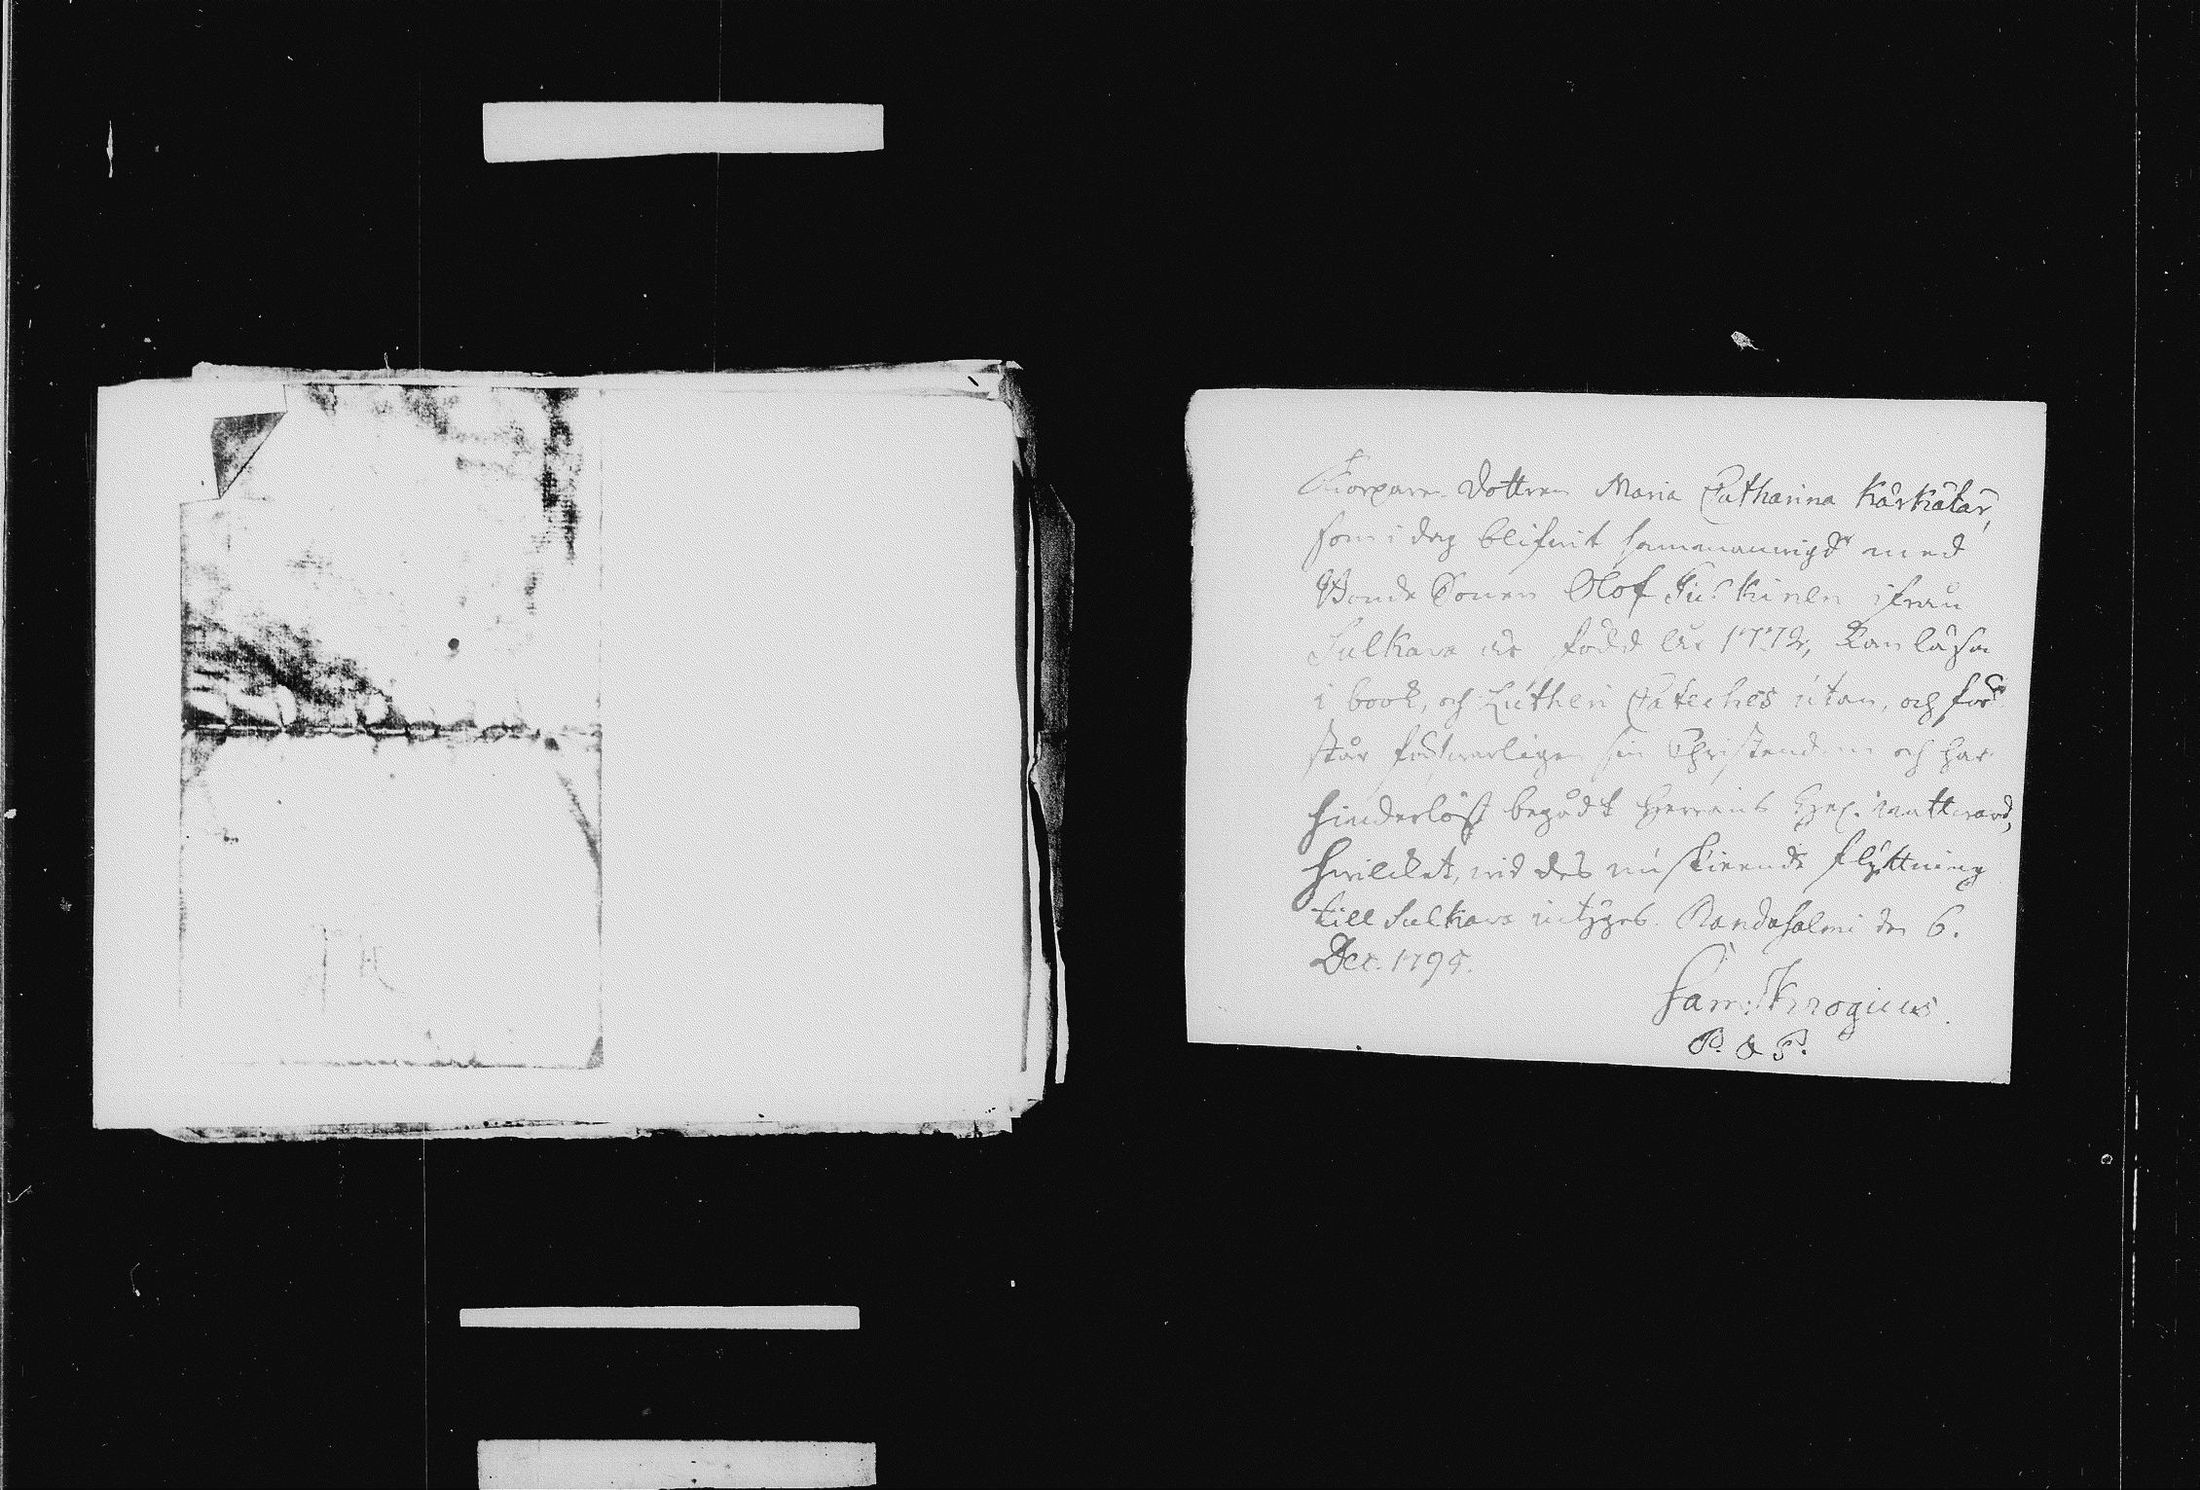 Torpare Dottren Maria Catharina Kärkätär,
som i dag blifwit sammanwigd med
Bonde Sonen Olof ifrån
Sulkava är född år 1772, kan läsa
i book, och Lutheri Cateches utan, och för
står försvarligen sin Christendom och har
hinderlöst begådt Herrans Hel. Nattward,
hwilcket, wid des flyttning
till Sulkava intygas. Randasalmi den 6.
Dec. 1795.
Sam: Krogius.
P. & P.